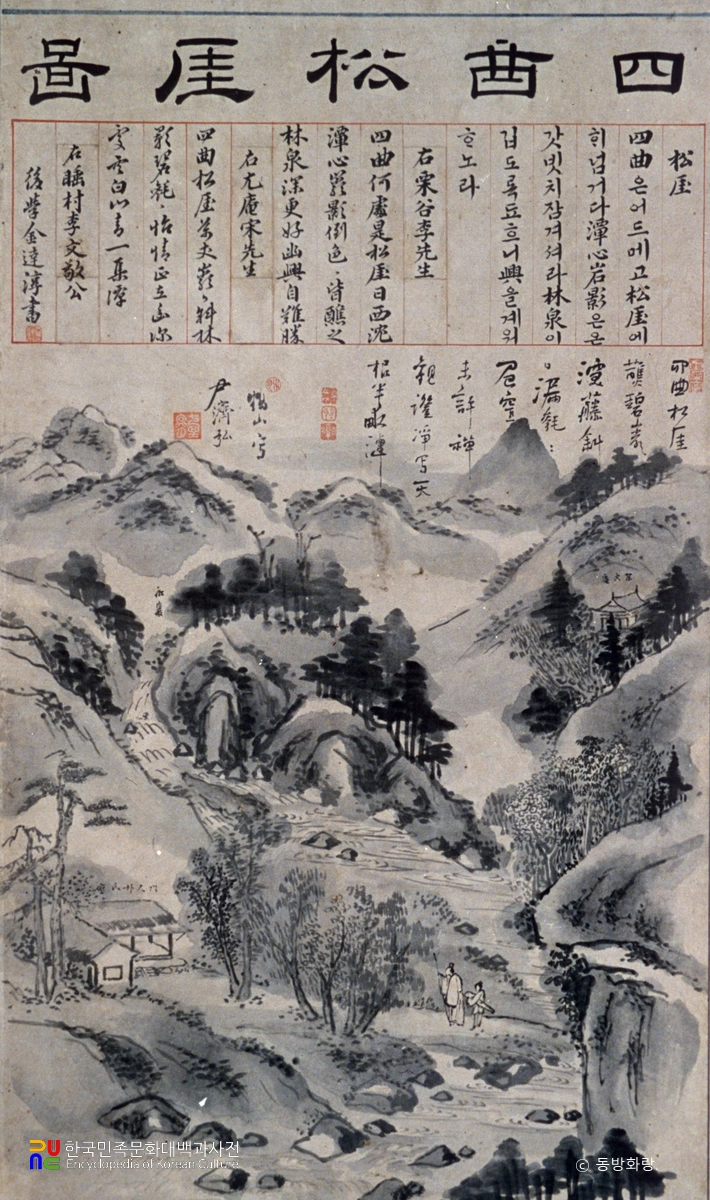 四曲松厓啚
松厓
四曲은어드메고松厓에
ᄒᆡ넘거다潭心岩影은온
갓빗치잠겨셔라林泉이
깁도록됴흐니興을계워
ᄒᆞ노라
右栗谷李先生
四曲何處是松厓日西沈
潭心巖影倒色〻皆蘸之
林泉深更好幽興自難勝
右尤庵宋先生
四曲松厓萬丈巖〻斜林
影碧毿〻怡情正在幽深
處雲白山青一鼎潭
右睡村李文敬公
後學金達淳書
四曲松厓
蘸碧巖
藤斜
日滿毿〻
未許禪
親證淨寫天
根半畝潭
鶴山寫
尹濟弘
한국민족문화대백과사전
Encyclopedia of Korean Culture
© 동방화랑